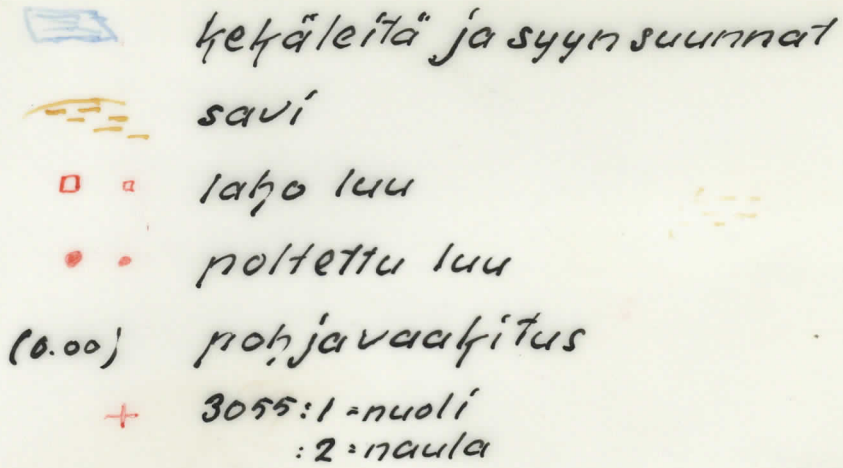 kekäleitä ja syyn suunnat
savi
laho luu
poltettu luu
(0.00) pohjavaakitus
3055:1=nuoli
:2=naula